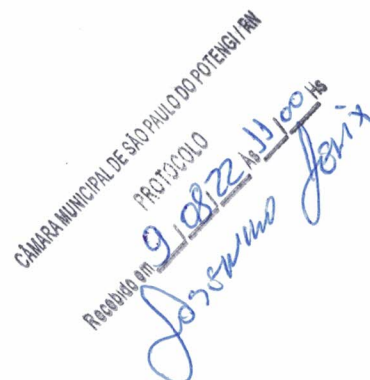 CÂMARA MUNICIPAL DE SÃO PAULO DO POTENGI / RN
PROTOCOLO
Recebido em 9 / 08/22 Às 11/00 Hs